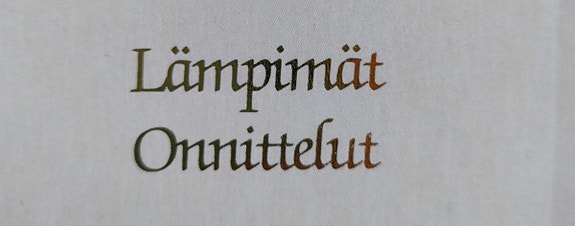 Lämpimät
Onnittelut